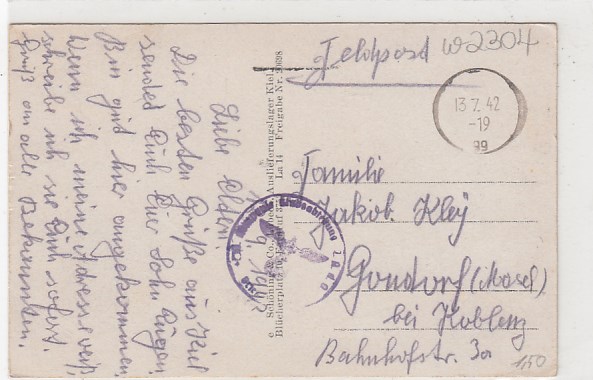 Feldpost
w2304
13.7.42
-19
99
Familie
Jakob Kley
Gondorf (Mosel)
bei Koblenz
Bahnhofstr. 3a
1,50
Liebe Eltern
Die besten Grüße aus Kiel
sendet Euch Euer Sohn Eugen.
Bin gut hier angekommen.
Wenn ich meine Adresse weiß
schreibe ich sie Euch sofort.
Gruß an alle Bekannten.
Schöning & Co., Lübeck, Auslieferungslager Kiel,
Blücherplatz La 14 Freigabe Nr.